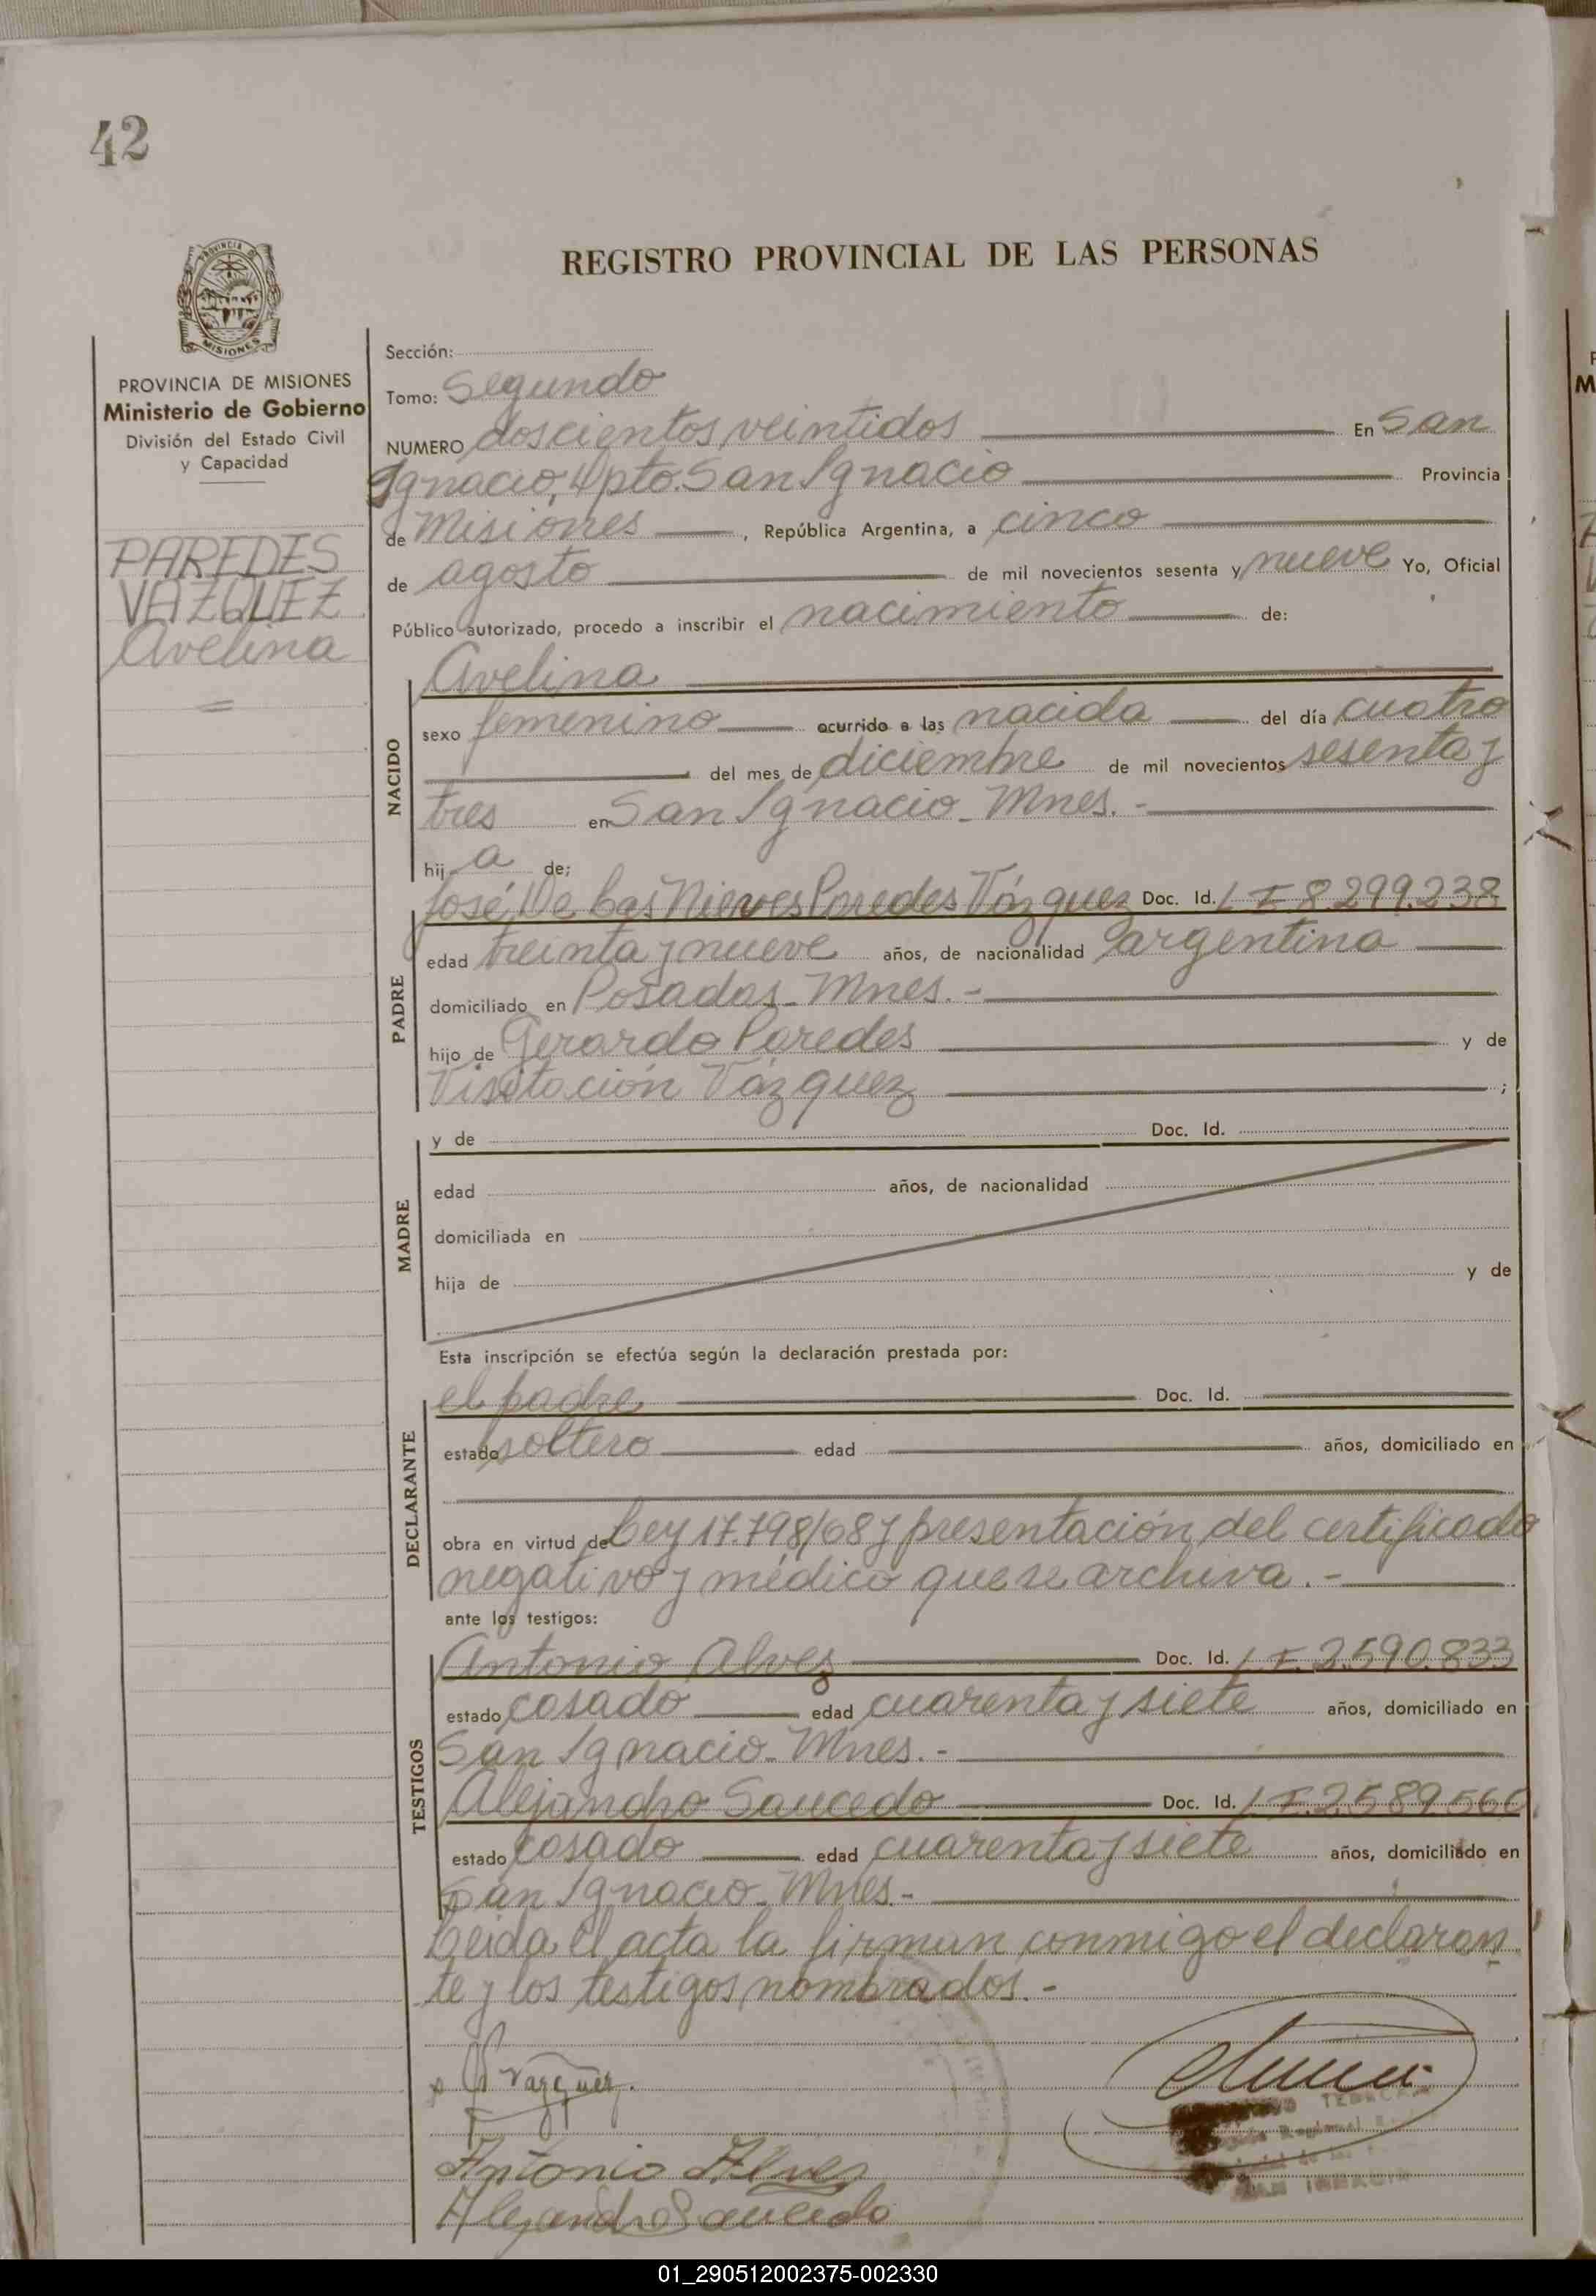 42
REGISTRO PROVINCIAL DE LAS PERSONAS
PROVINCIA DE
MISIONES
PROVINCIA DE MISIONES
Ministerio de Gobierno
División del Estado Civil
y Capacidad
PAREDES
VAZQUEZ
Avelina
Sección:
Tomo: Segundo
NUMERO doscientos veintidos En San
Ignacio, Dpto. San Ignacio Provincia
de Misiones, República Argentina, a cinco
de agosto de mil novecientos sesenta y nueve Yo, Oficial
Público autorizado, procedo a inscribir el nacimiento de:
NACIDO
Avelina
sexo femenino ocurrido a las nacida del día cuatro
del mes de diciembre de mil novecientos sesenta y
tres en San Ignacio - Mnes. -
hij a de;
PADRE
José De Las Nieves Paredes Vázquez Doc. Id. L I 8.299.238
edad treinta y nueve años, de nacionalidad argentina
domiciliado en Posadas - Mnes. -
hijo de Gerardo Paredes y de
Visitación Vázquez ;
MADRE
y de Doc. Id.
edad años, de nacionalidad
domiciliada en
hija de y de
Esta inscripción se efectúa según la declaración prestada por:
DECLARANTE
el padre Doc. Id.
estado soltero edad años, domiciliado en
obra en virtud de Ley 17.798/68 y presentación del certificado
negativo y médico que se archiva. -
ante los testigos:
TESTIGOS
Antonio Alvez Doc. Id. L I. 2.590.833
estado casado edad cuarenta y siete años, domiciliado en
San Ignacio - Mnes. -
Alejandro Saucedo Doc. Id. L I. 2.589.566
estado casado edad cuarenta y siete años, domiciliado en
San Ignacio - Mnes. -
Leida el acta la firman conmigo el declaran
te y los testigos nombrados. -
Vazquez.
Antonio Alves
Alejandro Saucedo
SAN IGNACIO
01_290512002375-002330